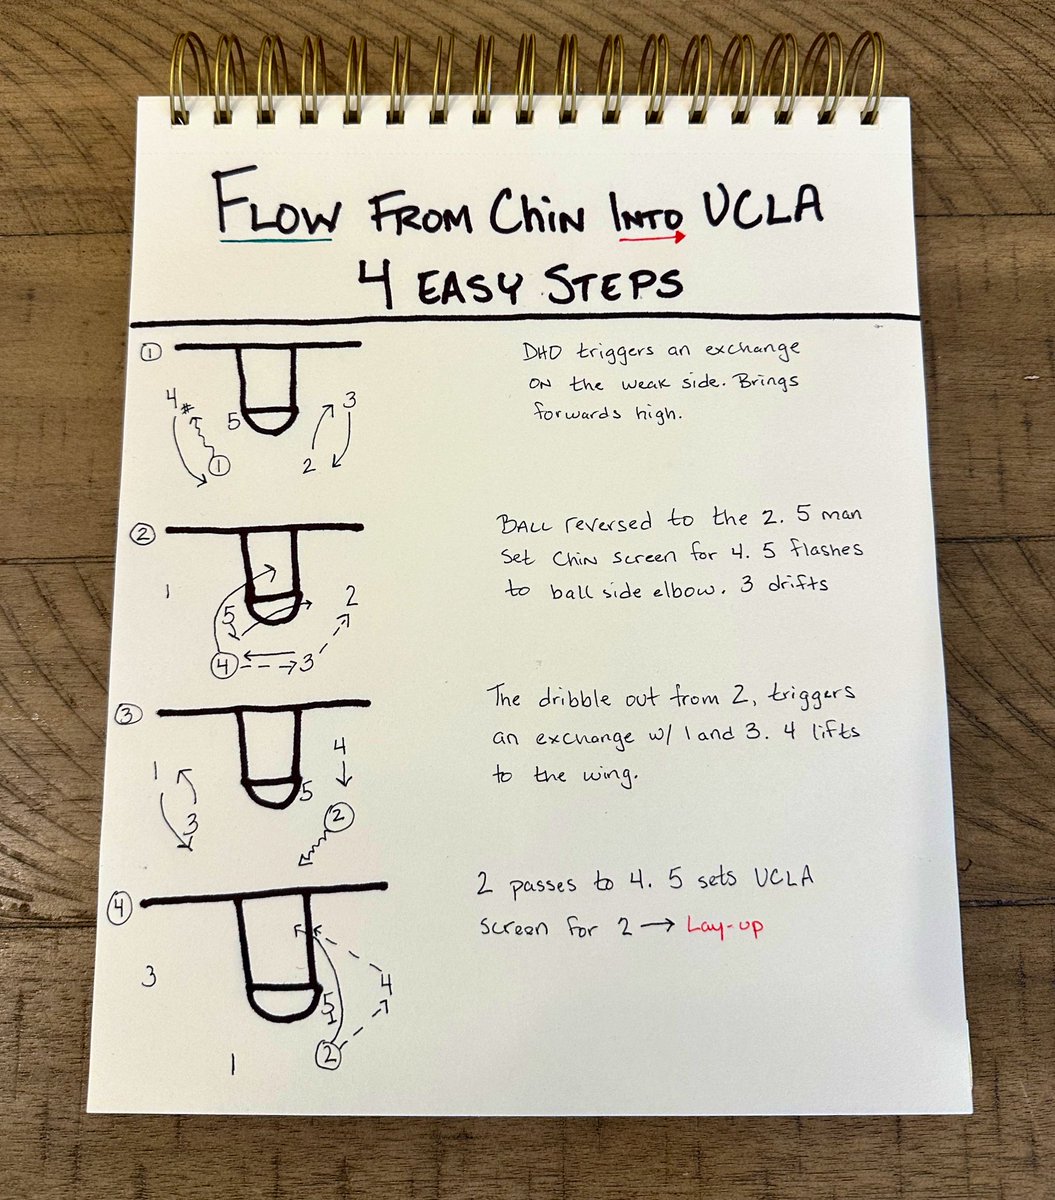 FLOW FROM Chin INTO UCLA
4 EASY STEPS
1
4 # 5 3
1 2
DHO triggers an exchange
ON the weak side. Brings
forwards high.
2
1 5 2
4 3
BALL reversed to the 2. 5 man
Set Chin screen for 4. 5 flashes
to ball side elbow. 3 drifts
3
1 4
5
3 2
The dribble out from 2, triggers
an exchange w/ 1 and 3. 4 lifts
to the wing.
4
3 4
5
1 2
2 passes to 4. 5 sets UCLA
screen for 2 → Lay-up